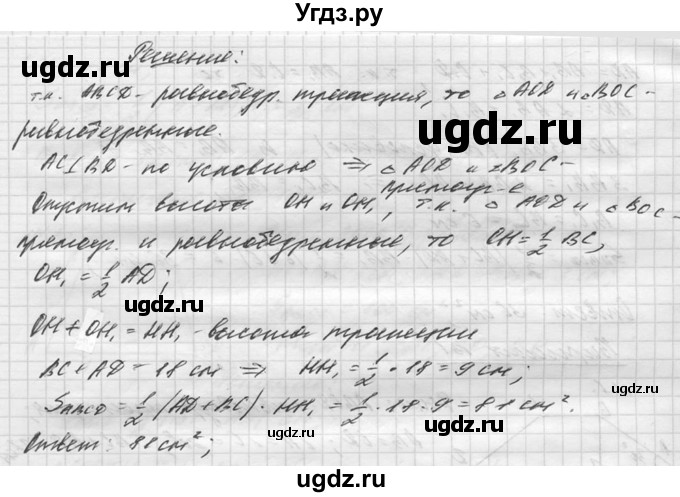 Угдз.ру
Решение:
т.к. ABCD - равнобедр. трапеция, то △AOD и △BOC -
равнобедренные.
AC⊥BD - по условию ⇒ △AOD и △BOC -
прямоуг-е
Опустим высоты OH и OH₁, т.к. △AOD и △BOC -
прямоуг. и равнобедренные, то OH = 1/2 BC,
OH₁ = 1/2 AD;
OH + OH₁ = HH₁ - высота трапеции
BC + AD = 18 см ⇒ HH₁ = 1/2 · 18 = 9 см;
SABCD = 1/2 (AD + BC) · HH₁ = 1/2 · 18 · 9 = 81 см².
Ответ: 81 см²;
ugdz.ru
ugdz.ru
ugdz.ru
ugdz.ru
ugdz.ru
ugdz.ru
ugdz.ru
ugdz.ru
ugdz.ru
ugdz.ru